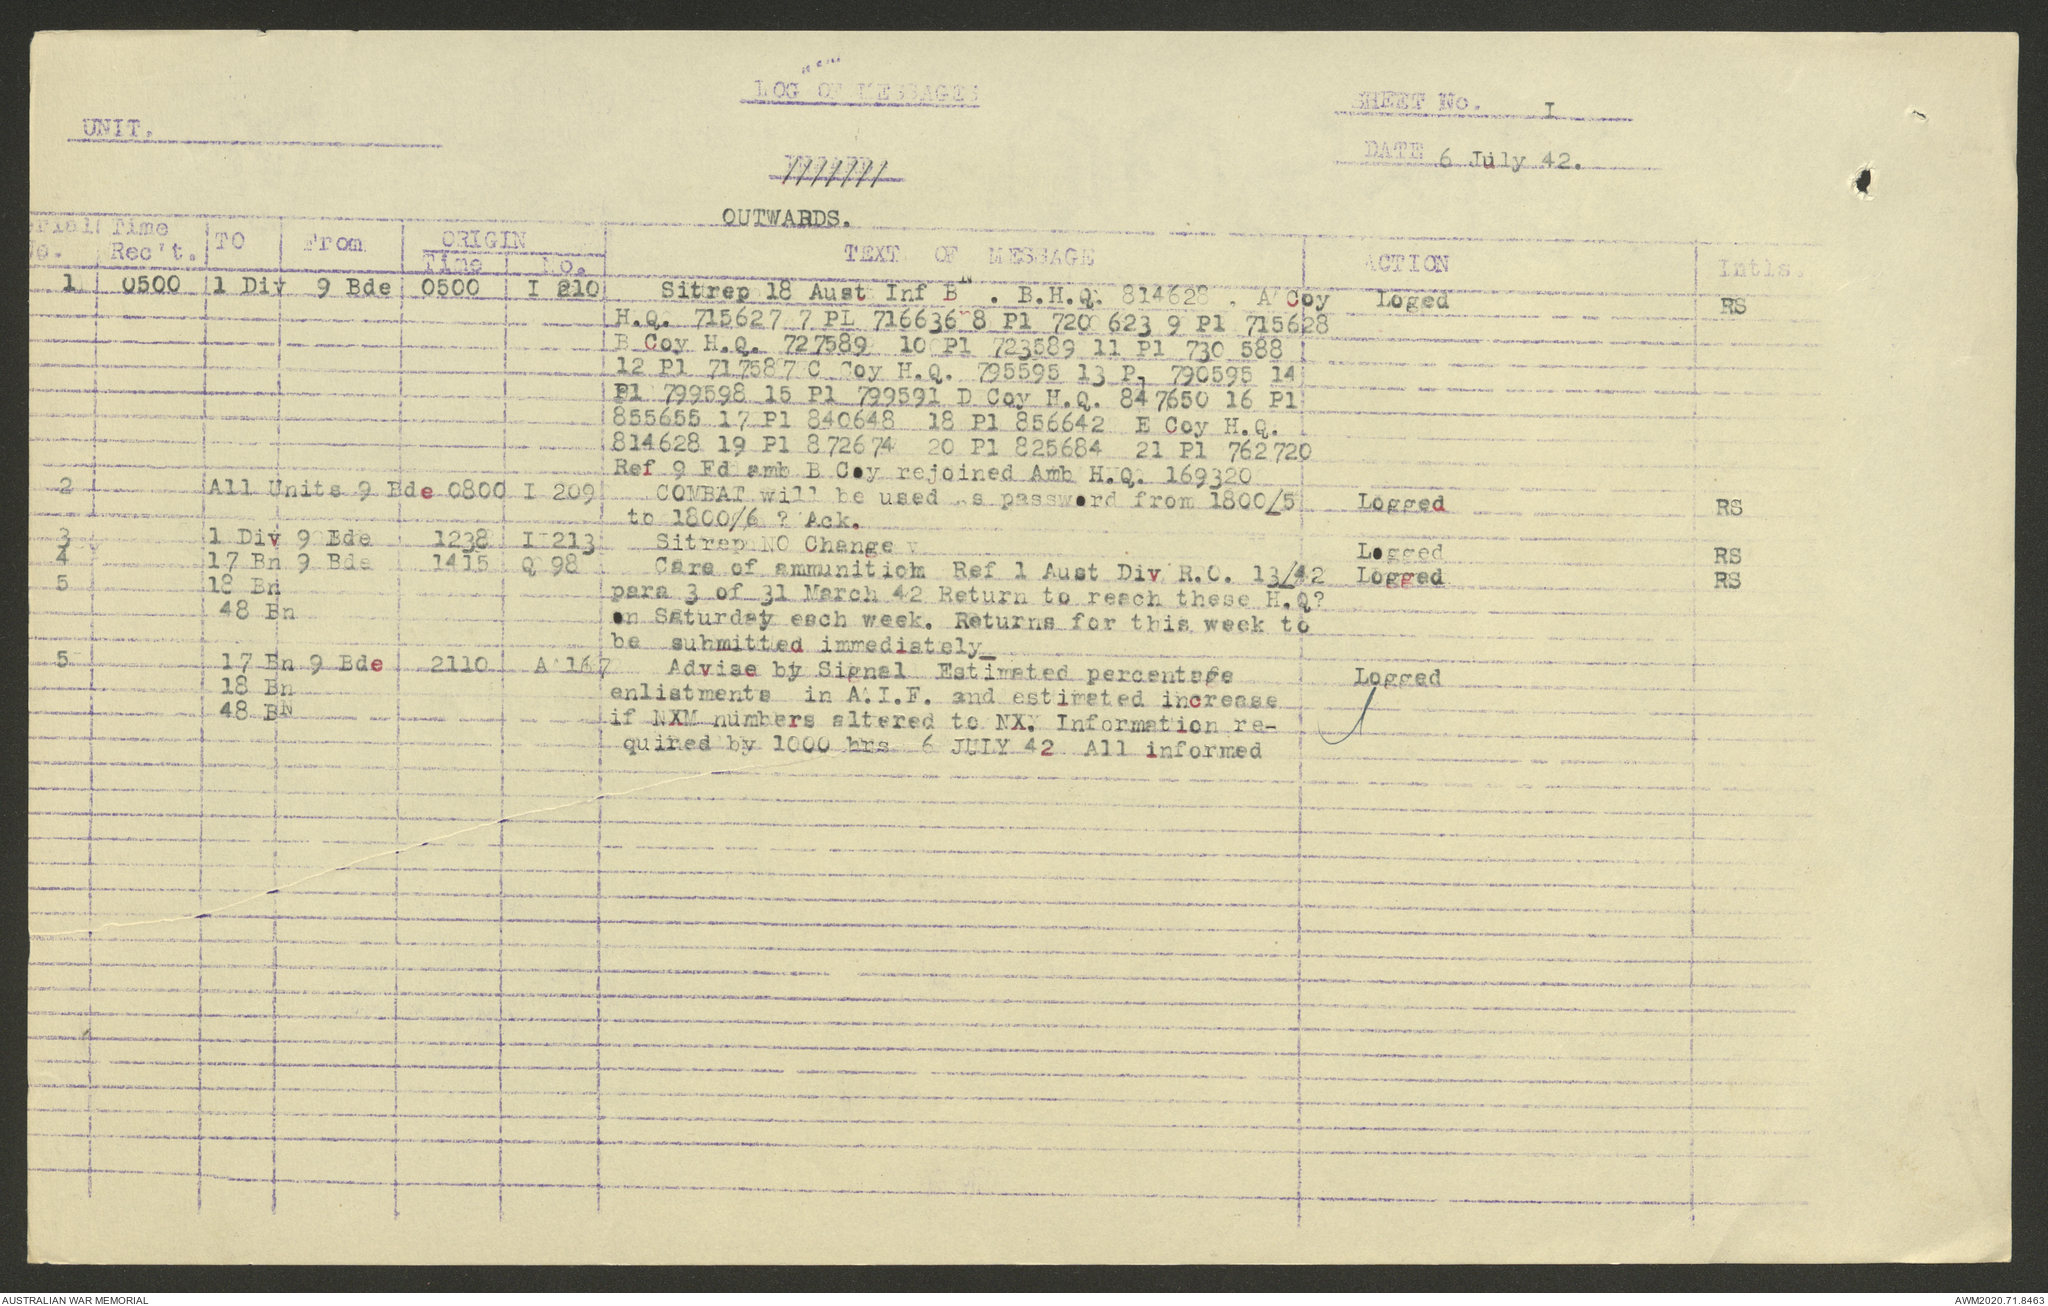 LOG OF MESSAGES
SHEET No. I
UNIT.
DATE 6 July 42.
OUTWARDS.
Serial No. Time Rec't. TO From ORIGIN Time No. TEXT OF MESSAGE ACTION Intls.
1 0500 1 Div 9 Bde 0500 I 210 Sitrep 18 Aust Inf BN . B.H.Q. 814628 . A Coy Loged RS
H.Q. 715627 7 PL 716636 8 Pl 720 623 9 Pl 715628
B Coy H.Q. 727589 10 Pl 723589 11 Pl 730 588
12 Pl 717587 C Coy H.Q. 795595 13 Pl 790595 14
Pl 799598 15 Pl 799591 D Coy H.Q. 847650 16 Pl
855655 17 Pl 840648 18 Pl 856642 E Coy H.Q.
814628 19 Pl 872674 20 Pl 825684 21 Pl 762720
Ref 9 Fd amb B Coy rejoined Amb H.Q. 169320
2 All Units 9 Bde 0800 I 209 COMBAT will be used as password from 1800/5 Logged RS
to 1800/6 ? Ack.
3 1 Div 9 Bde 1238 I 213 Sitrep NO Change Logged RS
4 17 Bn 9 Bde 1415 Q 98 Care of ammunitiom Ref 1 Aust Div R.O. 13/42 Logged RS
5 18 Bn para 3 of 31 March 42 Return to reach these H.Q?
48 Bn on Saturday each week. Returns for this week to
be submitted immediately_
5 17 Bn 9 Bde 2110 A 167 Advise by Signal Estimated percentage Logged
18 Bn enlistments in A.I.F. and estimated increase
48 BN if NXM numbers altered to NX. Information re-
quired by 1000 hrs 6 JULY 42 All informed
AUSTRALIAN WAR MEMORIAL
AWM2020.71.8463